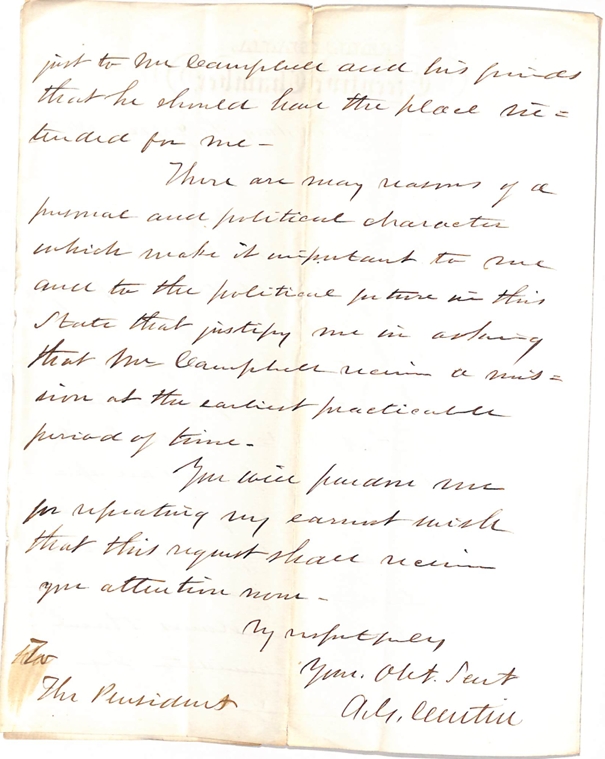 just to Mr Campbell and his friends
that he should have the place in=
tended for me -
There are many reasons of a
personal and political character
which make it important to me
and to the political future in this
State that justify me in asking
that Mr Campbell receive a mis=
sion at the earliest practicable
period of time -
You will pardon me
for repeating my earnest wish
that this request shall receive
your attention now -
Vy respectfully
Your. Obt. Servt
A.G. Curtin
To
The President